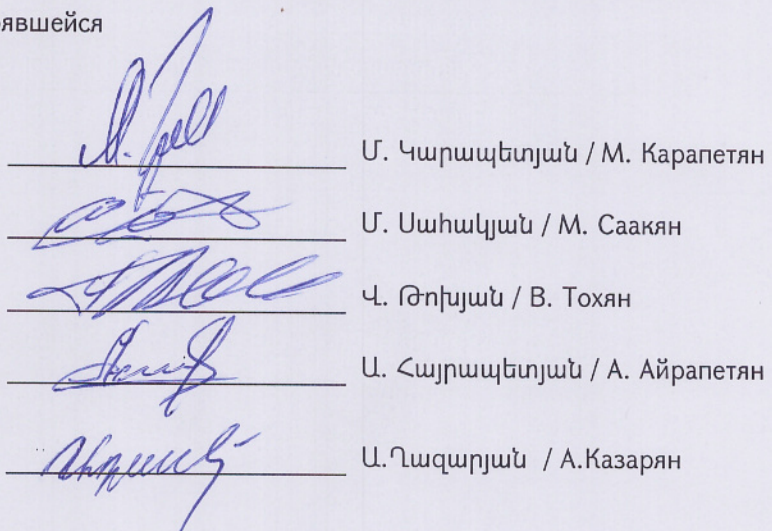 явшейся
Մ. Կարապետյան / М. Карапетян
Մ. Սահակյան / М. Саакян
Վ. Թոխյան / В. Тохян
Ա. Հայրապետյան / А. Айрапетян
Ա.Ղազարյան / А.Казарян